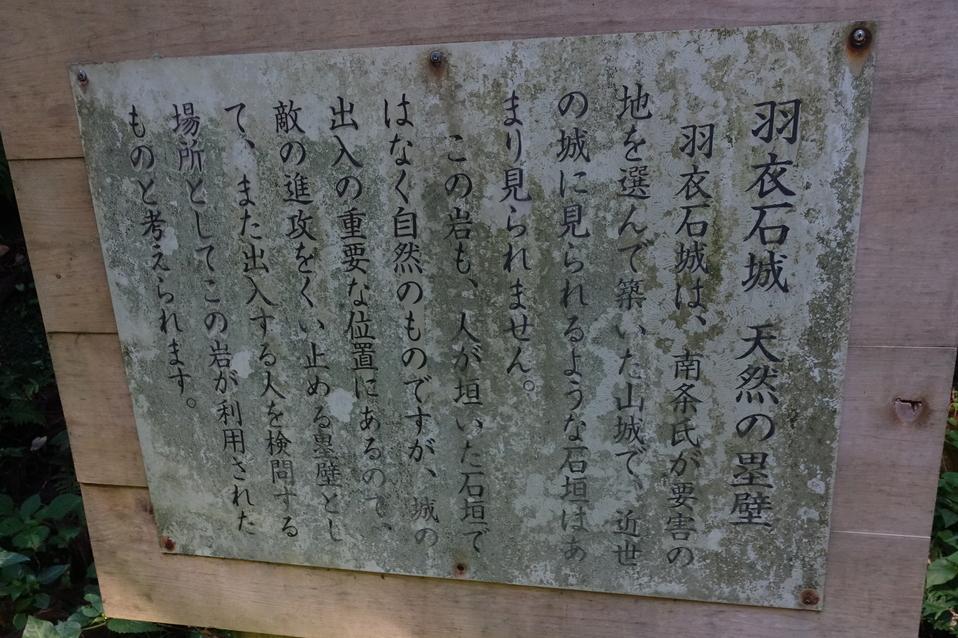 羽衣石城　天然の塁壁
羽衣石城は、南条氏が要害の
地を選んで築いた山城で、近世
の城に見られるような石垣はあ
まり見られません。
この岩も、人が垣いた石垣で
はなく自然のものですが、城の
出入の重要な位置にあるので、
敵の進攻をくい止める塁壁とし
て、また出入する人を検問する
場所としてこの岩が利用された
ものと考えられます。